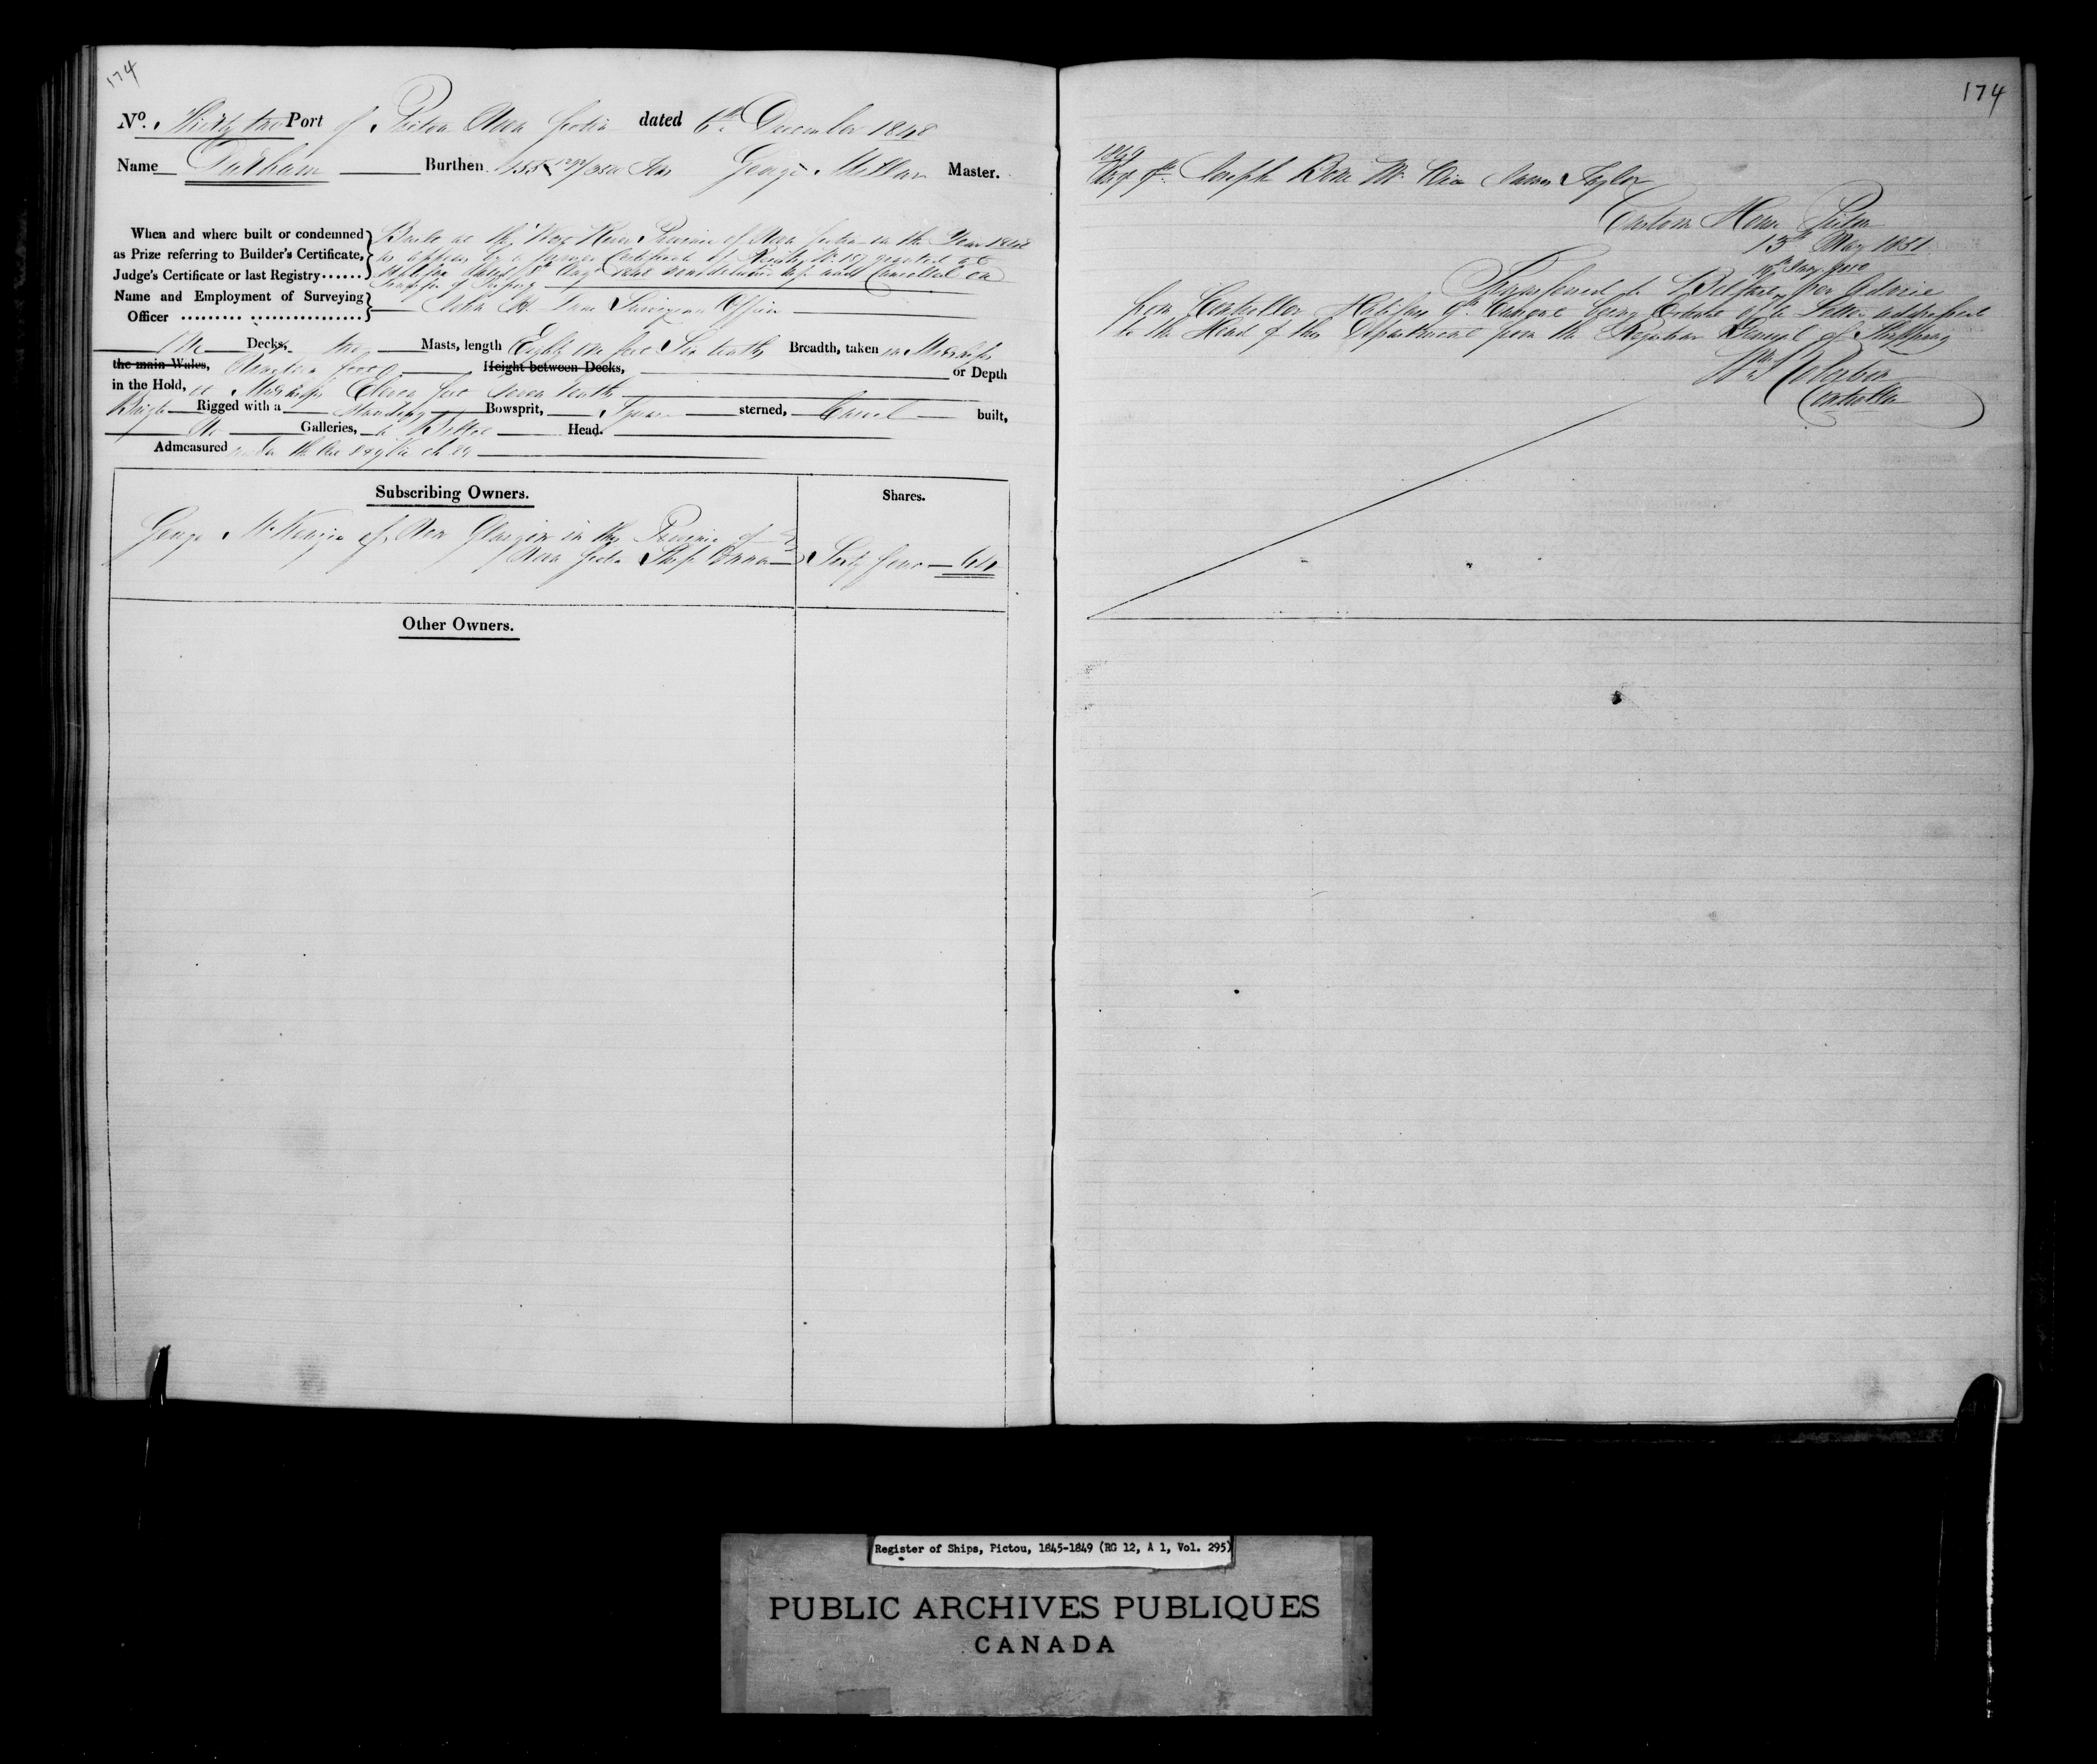 174
No. Thirty two Port of Pictou Nova Scotia dated 6th December 1848
Name Durham Burthen 155 1292/3500 Tons George Millar Master.
When and where built or condemned
as Prize referring to Builder's Certificate,
Judge's Certificate or last Registry......
Built at the West River Province of Nova Scotia in the Year 1848
as appears by a former Certificate of Registry No. granted at
Halifax dated Augt 1848 now delivered up and Cancelled on
Transfer of Property
Name and Employment of Surveying
Officer ......... ................
John Surveying Officer
One Decks, two Masts, length Eighty one feet Six tenths Breadth, taken in Midships
the main Wales, Nineteen feet Height between Decks, or Depth
in the Hold, at Midships Eleven feet seven tenths
Brigt Rigged with a standing Bowsprit, Square sterned, Carvel built,
No Galleries, a Billet Head.
Admeasured under the Act 8 & 9 Vic ch 89
Subscribing Owners.
Shares.
George McKenzie of New Glasgow in the Province of
Nova Scotia Ship Owner
Sixty four 64
Other Owners.
174
1849
Joseph Vice James Taylor
Custom House Pictou
13th May 1851
Transferred to Belfast per Advice
from Controller Halifax 9th Current being of a Letter addressed
to the Head of this Department from the Registrar General of Shipping
Controller
Register of Ships, Pictou, 1845-1849 (RG 12, A 1, Vol. 295)
PUBLIC ARCHIVES PUBLIQUES
CANADA